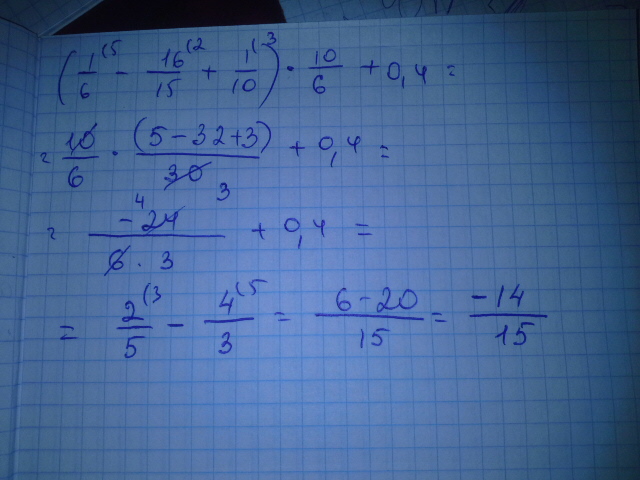 (1/6 (5 - 16/15 (2 + 1/10 (3) · 10/6 + 0,4 =
= 10/6 · (5 - 32 + 3)/30 3 + 0,4 =
= -24 4/6 · 3 + 0,4 =
= 2/5 (3 - 4/3 (5 = 6 - 20/15 = -14/15